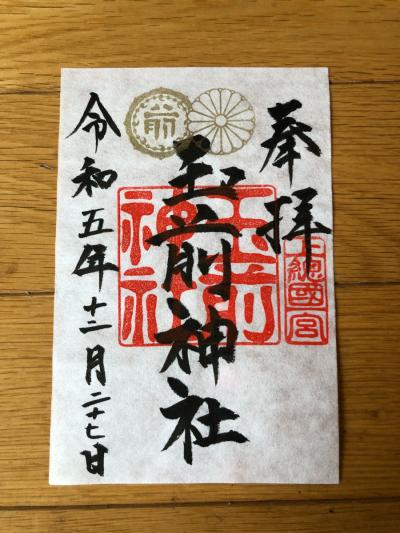 奉拝
上総國一宮
玉前神社
玉前神社
前
令和五年十二月二十七日